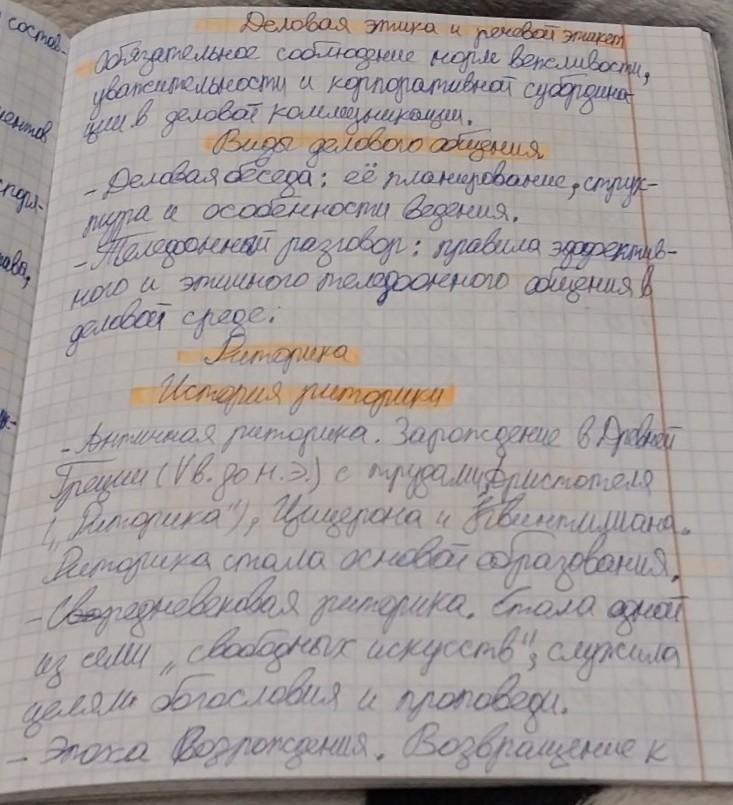 состав-
ментов
споря-
ава,
Деловая этика и речевой этикет
Обязательное соблюдение норм вежливости,
уважительности и корпоративной субордина-
ции в деловой коммуникации.
Виды делового общения
- Деловая беседа: её планирование, струк-
тура и особенности ведения.
- Телефонный разговор: правила эффектив-
ного и этичного телефонного общения в
деловой среде.
Риторика
История риторики
- Античная риторика. Зарождение в Древней
Греции (V в. до н.э.) с трудами Аристотеля
(„Риторика"), Цицерона и Квинтилиана.
Риторика стала основой образования.
- Средневековая риторика. Стала одной
из семи „свободных искусств", служила
целям богословия и проповеди.
- Эпоха Возрождения. Возвращение к